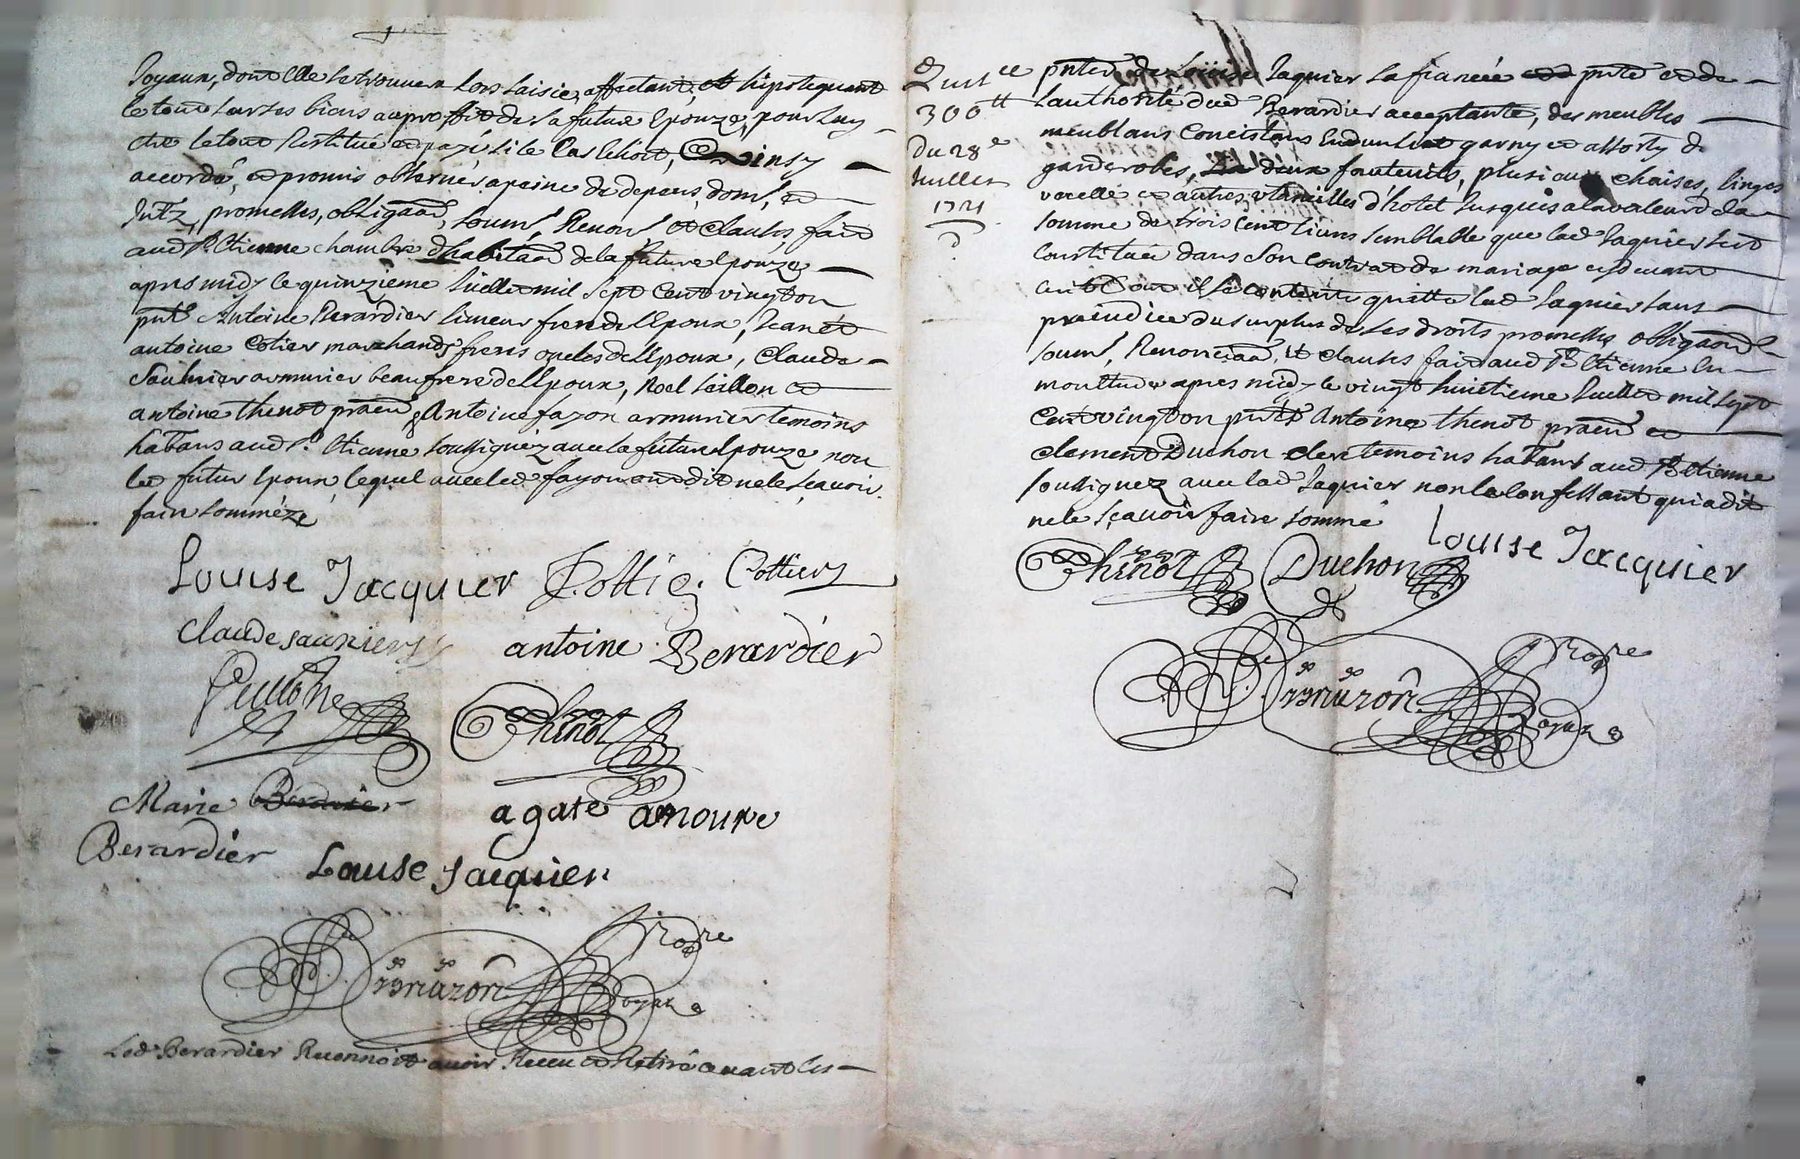 Joyaux, dont elle se trouvera lors saisie, affectant, et hipotequant
le tout sur ses biens au proffit de sa future Epouze, pour luy
etre le tout Restitué et payé si le cas echoit, Et ainsy
accordé, et promis observer a peine de depens, dom, et
Intz, promesses, obligaon, soums, Renons et clauses fait
aud St. Etienne chambre d'habitaon de la future Epouze
apres midy le quinzieme Juillet mil sept cent vingt on
pnts Antoine Berardier limeur frere de lEpoux, Jean et
antoine Cotier marchands freres oncles de lEpoux, Claude
Saunier armurier beaufrere de lEpoux, Noel
antoine thenot praen & Antoine fayon armurier temoins
habtans aud St. Etienne soussignez avec la future Epouze non
led futur Epoux, lequel avec led fayon ont dit ne le sçavoir
fair sommeze
Louise Jacquier Cottier
Claude sauniers antoine Berardier
Thenot
Marie
agate
Berardier Louise Jacquier
Nore
Royal
Led. Berardier Reconnoit avoir Receu et Retiré avant les
Quitce
300tt
du 28e
Juillet
1721
pntes de Louise Jaquier sa fiancée pnte et de
lauthorité dud Berardier acceptante, des meubles
meublans Concistans En un lict garny et assorty
garderobes, deux fauteuils, plusieurs chaises, linges
vecelle et autres utancilles d'hotel Jusquis a la valeur de la
somme de trois Cent livres semblable que lad Jaquier sest
Constituée dans son contrat de mariage cydevant
il se contente quitte lad Jaquier sans
prejudice du surplus de ses droits promesses obligaons
soums, Renonciaon, et clauses fait aud St. Etienne En
mon Etude apres midy le vingt huitieme Juillet mil sept
Cent vingt on pnts Antoine thenot praen et
clement Duchon clerc temoins habtans aud St Etienne
soussignez avec lad Jaquier non le confessant qui a dit
ne le sçavoir faire sommé
Louise Jacquier
Thenot Duchon
Nore
Royal